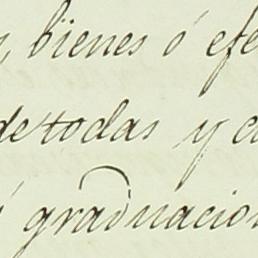 bienes ó efe
de todas y c
graduacion